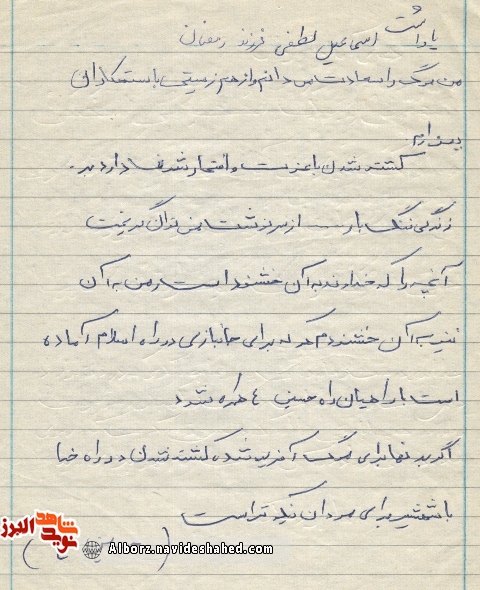 یاداشت
اسماعیل لطفی فرزند رمضان
من مرگ را سعادت می دانم و از هم زیستی با ستمکاران
بیزارم
کشته شدن با عزت و افتخار شرف دارد بر
زندگی ننگ بار از سرنوشت نمی توان گریخت
آنچه را که خداوند به آن خشنود است من به آن
نیز به آن خشنودم هر که برای جانبازی در راه اسلام آماده
است با راهیان راه حسین ع همراه شود
اگر بدنها برای مرگ آفریده شده کشته شدن در راه خدا
با شمشیر برای مردان نیکوتر است
شاهد
نوید البرز
Alborz.navideshahed.com